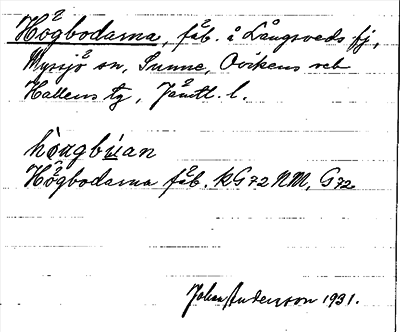 Högbodarna, fäb. å Långsveds fj,
Myssjö sn, Sunne, Ovikens och
Hallens tg, Jämtl. l.
hö̀ugbúan
Högbodarna fäb. KG72NM, G72.
Johan Anderson 1931.